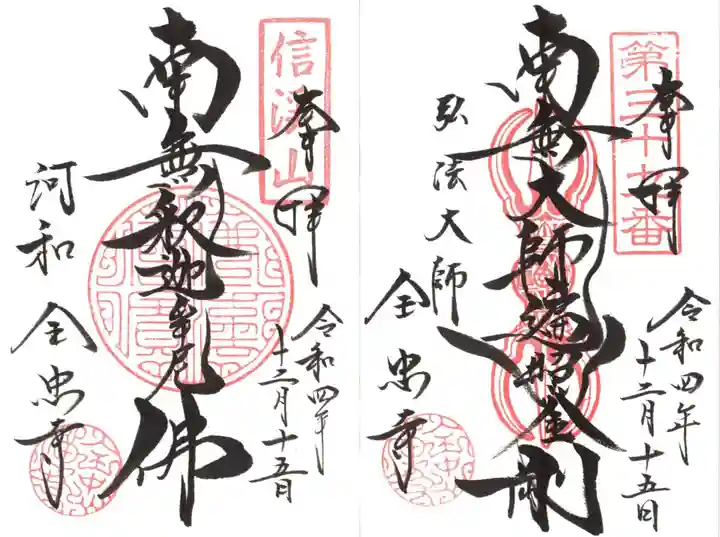 奉拝
令和四年
十二月十五日
南無釈迦牟尼佛
河和
全忠寺
奉拝
令和四年
十二月十五日
南無大師遍照金剛
弘法大師
全忠寺